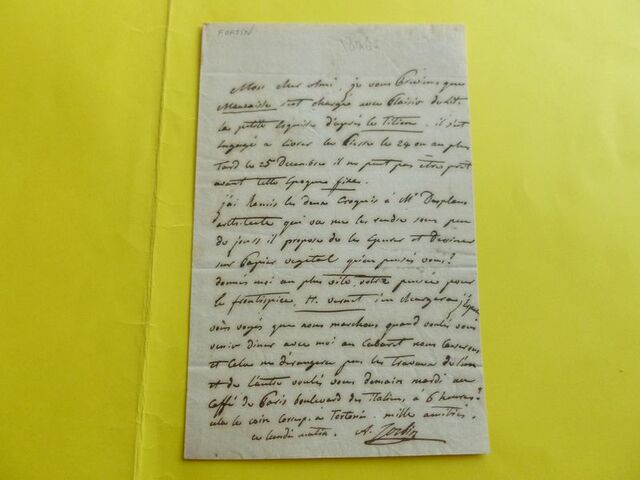 FORTIN
Mon cher ami je vous préviens que
Mauzaisse s'est chargé avec plaisir de lith.
la petite esquisse d'après le Titien. il s'est
engagé a livrer la Pierre le 24 ou au plus
tard le 25 Decembre il ne peut pas être prêt
avant cette époque fixe.
j'ai Remis les deux Croquis à Mr Desplans
architecte qui va me les rendre sous peu
de jours il propose de les et Dessiner
sur Papier vegetal qu'en pensez vous?
donnés moi au plus vite votre pensée pour
le frontispice, H. Vernet s'en chargera j'espère
vous voyés que nous marchons quand voulés vous
venir diner avec moi au Cabaret nous Causerons
et Cela ne dérangera pas les travaux de l'un
et de l'autre voulés vous demain mardi au
Caffé de Paris boulevard des Italiens, à 6 heures?
le coin mille amitiés.
ce lundi matin. A.